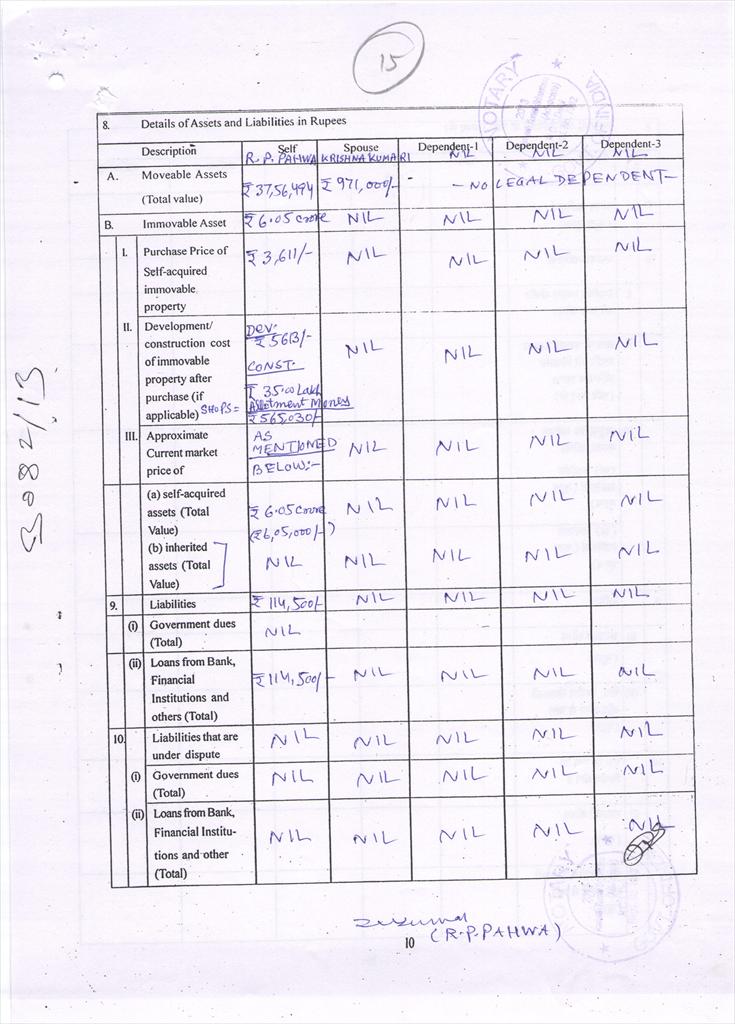 15
8. Details of Assets and Liabilities in Rupees
Description Self Spouse Dependent-1 Dependent-2 Dependent-3
R. P. PAHWA KRISHNA KUMARI NIL NIL NIL
A. Moveable Assets ₹37,56,494 ₹971,000/- - - NO LEGAL DEPENDENT -
(Total value)
B. Immovable Asset ₹6.05 crore NIL NIL NIL NIL
I. Purchase Price of ₹3,611/- NIL NIL NIL NIL
Self-acquired
immovable
property
II. Development/ DEV.
construction cost ₹5613/- NIL NIL NIL NIL
of immovable CONST.
property after
purchase (if ₹ 35.00 Lakh
applicable) SHOPS = Allotment Money
₹565,030/-
III. Approximate AS NIL NIL NIL NIL
Current market MENTIONED
price of BELOW:-
(a) self-acquired
assets (Total ₹6.05 Crore NIL NIL NIL NIL
Value) (₹6,05,000/-)
(b) inherited
assets (Total NIL NIL NIL NIL NIL
Value)
9. Liabilities ₹ 114,500/- NIL NIL NIL NIL
(i) Government dues NIL
(Total)
(ii) Loans from Bank, ₹114,500/- NIL NIL NIL NIL
Financial
Institutions and
others (Total)
10. Liabilities that are NIL NIL NIL NIL NIL
under dispute
(i) Government dues NIL NIL NIL NIL NIL
(Total)
(ii) Loans from Bank,
Financial Institu- NIL NIL NIL NIL NIL
tions and other
(Total)
(R.P.PAHWA)
10
NOTARY
NOTARY